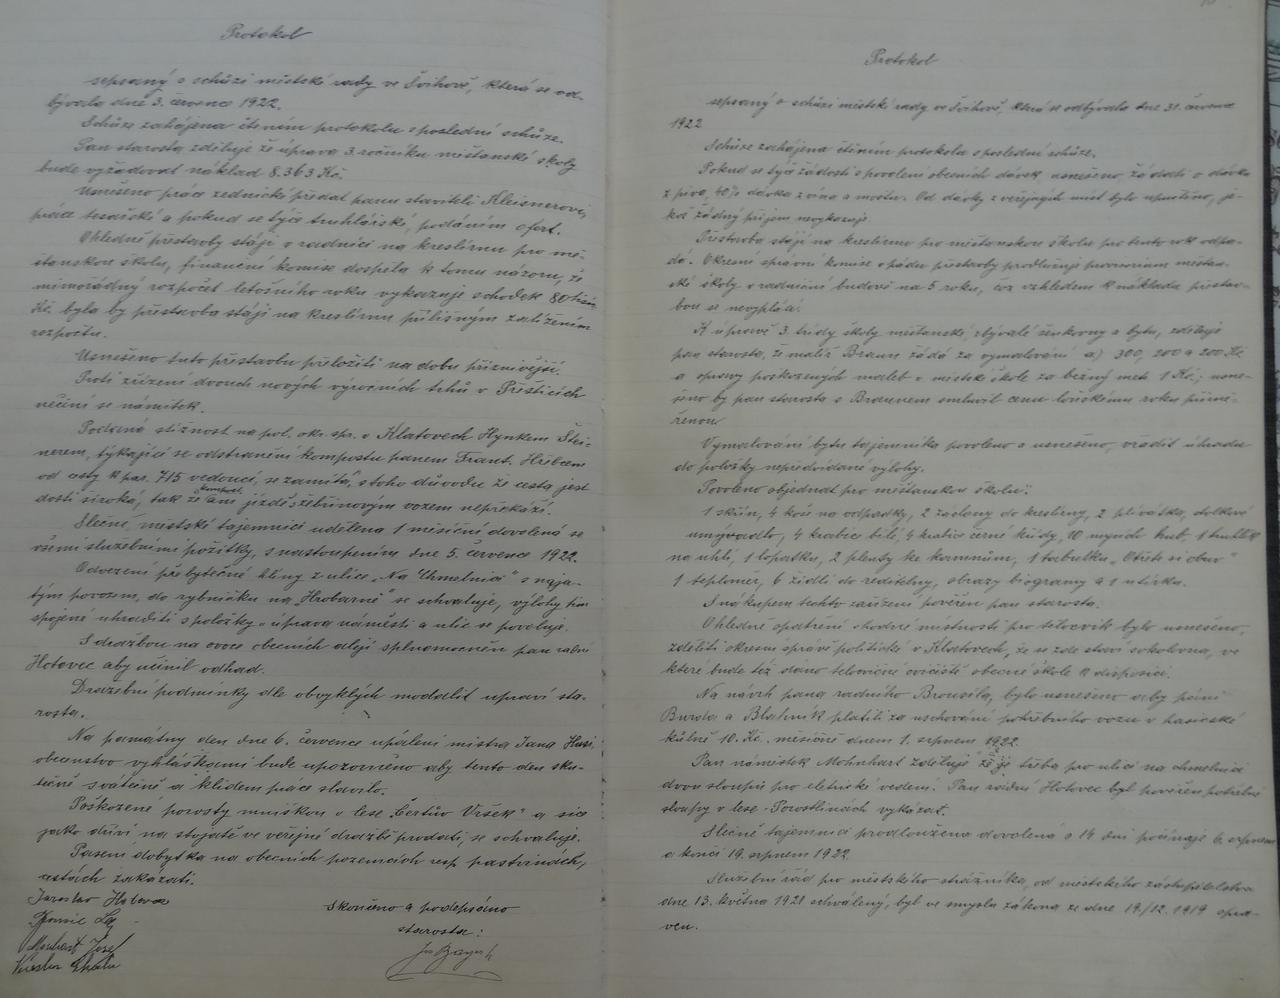 Protokol
sepsaný o schůzi městské rady ve Švihově, která se od-
bývala dne 3. července 1922.
Schůze zahájena čtením protokolu z poslední schůze.
Pan starosta zděluje že úprava 3. ročníku měšťanské školy
bude vyžadovat náklad 8.363 Kč.
Usnešeno práce zednické předat panu staviteli Kleisnerovi,
práce tesařské a pokud se týče truhlářské, podáním ofert.
Ohledně přestavby stájí v radnici na kreslírnu pro mě-
šťanskou školu, finanční komise dospěla k tomu názoru, že
mimořádný rozpočet letošního roku vykazuje schodek 80 tisíc
Kč. byla by přestavba stájí na kreslírnu přílišným zatížením
rozpočtu.
Usnešeno tuto přestavbu přeložiti na dobu příznivější.
Proti zřízení dvouch nových výročních trhů v Přešticích
nečiní se námitek.
Podaná stížnost na pol. okr. spr. v Klatovech Hynkem Štei-
nerem, týkající se odstranění kompostu panem Frant. Hřibcem
od cesty k par. 715 vedoucí, se zamítá, z toho důvodu že cesta jest
dosti široká, tak že kompost ani jízdě s žebřinovým vozem nepřekáží.
Slečně městské tajemnici udělena 1 měsíční dovolená se
všemi služebními požitky, s nastoupením dne 5. července 1922.
Odvezení přebytečné hlíny z ulice „Na Chmelnici" s naja-
tým povozem, do rybníčku na „Hrobarně" se schvaluje, výlohy tím
spojené uhraditi s položky „úprava náměstí a ulic se povoluje.
S dražbou na ovoce obecních alejí splnomocněn pan radní
Hotovec aby učinil odhad.
Dražební podmínky dle obvyklých modalit upraví sta-
rosta.
Na památný den dne 6. července upálení mistra Jana Husi,
obecenstvo vyhláškami bude upozorněno aby tento den sku-
tečně svátečně a klidem práce slavilo.
Poškozené porosty mniškou v lese „Čertův Vršek" a sice
jako dříví na stojatě ve veřejné dražbě prodati, se schvaluje.
Pasení dobytka na obecních pozemcích resp. pastvinách,
cestách zakázati.
Skončeno a podepsáno
starosta:
Protokol
sepsaný o schůzi městské rady ve Švihově, která se odbývala dne 31. července
1922
Schůze zahájena čtením protokolu s poslední schůze.
Pokud se týče žádosti o povolení obecních dávek, usnešeno, žádati o dávku
z piva, 40% dávka z vína a moštu. Od dávky z veřejných míst bylo upuštěno, je-
kož žádný příjem nevykazuje.
Přestavba stájí na kreslírnu pro měšťanskou školu pro tento rok odpa-
dá. Okresní správní komise v pádu přestavby prodlužuje provisorium měšťan-
ské školy v radniční budově na 5 roků, což vzhledem k nákladu přestav-
bou se nevyplácí.
K úpravě 3. třídy školy měšťanské, zbývalé šenkovny a bytu, zděluje
pan starosta, že malíř Braun žádá za vymalování a) 300, 200 a 200 Kč
a opravy poškozených maleb v městské škole za bežný metr 1 Kč.; usne-
šeno by pan starosta s Braunem smluvil cenu loňskému roku přimě-
řenou
Vymalování bytu tajemníka povoleno a usnešeno, vřadit úhradu
do položky nepředvídané výlohy.
Povoleno objednat pro měšťanskou školu:
1 skříň, 4 koše na odpadky, 2 záclony do kreslírny, 2 plivátka, stolkové
umyvadlo, 4 krabice bílé, 4 krabice černé křídy, 10 mycích hub, 1 truhlík
na uhlí, 1 lopatku, 2 plenty ke kamnům, 1 tabulku „Otřete si obuv"
1 teploměr, 6 židlí do ředitelny, obrazy biogramy a 1 utěrku.
S nákupem těchto zařízení pověřen pan starosta.
Ohledně opatření vhodné místnosti pro tělocvik bylo usnešeno,
zděliti okresní správě politické v Klatovech, že se zde staví sokolovna, ve
které bude též dáno tělocvičné cvičiště obecné škole k disposici.
Na návrh pana radního Brousila, bylo usnešeno aby páni
Burda a Blahník platili za uschování potřebního vozu v hasičské
kůlně 10. Kč. měsíčně dnem 1. srpnem 1922.
Pan náměstek Mohnhart zděluje že je třeba pro ulici na chmelnici
dvou sloupů pro eletrické vedení. Pan radní Hotovec byl pověřen potřebné
sloupy v lese - Povostlinách vykázat.
Slečně tajemnici prodloužena dovolená o 14 dní počínaje 6. srpnem
a končí 19. srpnem 1922.
Služební řád pro městského strážníka, od městského zastupitelstva
dne 13. května 1921 schválený, byl ve smyslu zákona ze dne 19./12. 1919 opra-
ven.